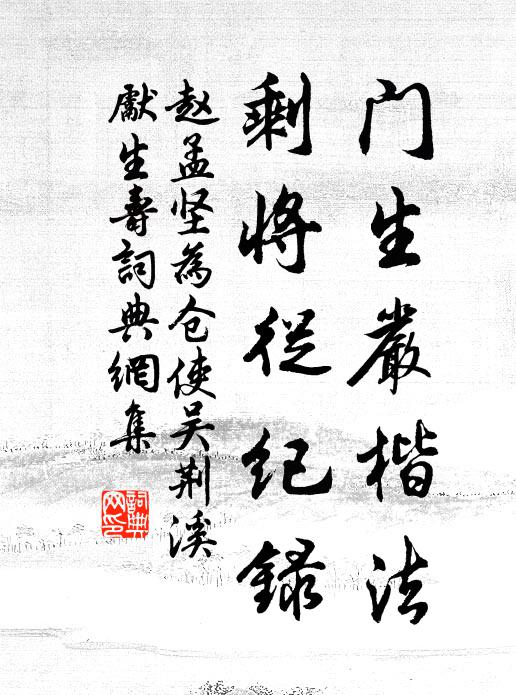 门生严楷法
剩将从纪录
赵孟坚为仓使吴荆溪
献生寿词典网集
词典
网印